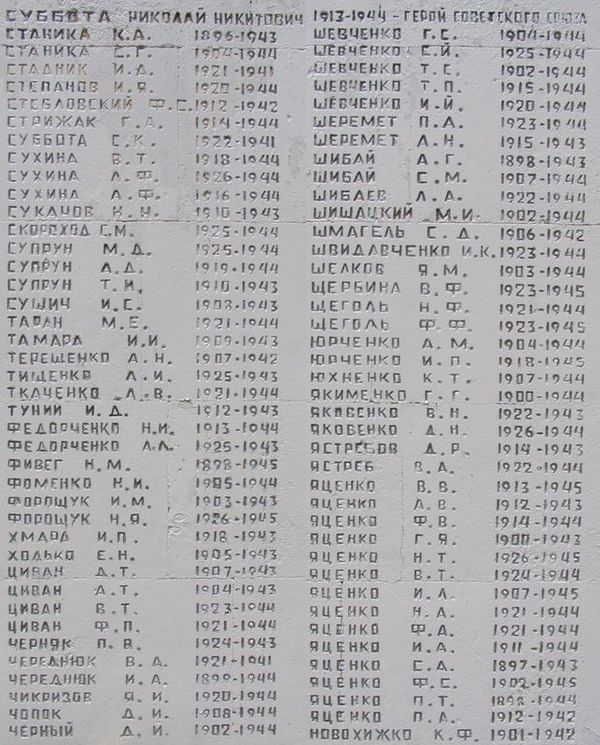 СУББОТА НИКОЛАЙ НИКИТОВИЧ 1913-1944 - ГЕРОЙ СОВЕТСКОГО СОЮЗА
СТАНИКА К.А. 1896-1943
СТАНИКА С.Г. 1904-1944
СТАДНИК И.А. 1921-1941
СТЕПАНОВ И.Я. 1920-1944
СТЕБЛОВСКИЙ Ф.С. 1912-1942
СТРИЖАК Г.А. 1914-1944
СУББОТА С.К. 1922-1941
СУХИНА В.Т. 1918-1944
СУХИНА А.Ф. 1926-1944
СУХИНА А.Ф. 1916-1944
СУКАЧОВ Н.Н. 1910-1943
СКОРОХОД С.М. 1925-1944
СУПРУН М.Д. 1925-1944
СУПРУН А.Д. 1919-1944
СУПРУН Т.И. 1910-1943
СУШИЧ И.С. 1908-1943
ТАРАН М.Е. 1921-1944
ТАМАРА И.И. 1909-1943
ТЕРЕЩЕНКО А.Н. 1907-1942
ТИЩЕНКО А.И. 1925-1943
ТКАЧЕНКО Л.В. 1921-1944
ТУНИЙ И.Д. 1912-1943
ФЕДОРЧЕНКО Н.И. 1913-1944
ФЕДОРЧЕНКО А.Л. 1925-1943
ФИВЕГ Н.М. 1898-1945
ФОМЕНКО Н.И. 1905-1944
ФОРОЩУК И.М. 1903-1943
ФОРОЩУК Н.Я. 1926-1945
ХМАРА И.П. 1918-1943
ХОДЬКО Е.Н. 1905-1943
ЦИВАН Д.Т. 1907-1943
ЦИВАН А.Т. 1904-1943
ЦИВАН В.Т. 1923-1944
ЦИВАН Ф.П. 1921-1944
ЧЕРНЯК П.В. 1924-1943
ЧЕРЕДНЮК В.А. 1921-1941
ЧЕРЕДНЮК И.А. 1899-1944
ЧИКРИЗОВ Я.И. 1920-1944
ЧОПОК Д.И. 1908-1944
ЧЕРНЫЙ Д.И. 1902-1944
ШЕВЧЕНКО Г.С. 1904-1944
ШЕВЧЕНКО С.Й. 1925-1944
ШЕВЧЕНКО Т.С. 1902-1944
ШЕВЧЕНКО Т.П. 1915-1944
ШЕВЧЕНКО И.Й. 1920-1944
ШЕРЕМЕТ П.А. 1923-1944
ШЕРЕМЕТ Л.Н. 1915-1943
ШИБАЙ А.Г. 1898-1943
ШИБАЙ С.М. 1907-1944
ШИБАЕВ Л.А. 1922-1944
ШИШАЦКИЙ М.И. 1902-1944
ШМАГЕЛЬ С.Д. 1906-1942
ШВИДАВЧЕНКО И.К. 1923-1944
ШЕЛКОВ Я.М. 1903-1944
ЩЕРБИНА В.Ф. 1923-1945
ЩЕГОЛЬ Н.Ф. 1921-1944
ЩЕГОЛЬ Ф.Ф. 1923-1945
ЮРЧЕНКО А.М. 1904-1944
ЮРЧЕНКО И.П. 1918-1945
ЮХНЕНКО К.Т. 1907-1944
ЯКИМЕНКО Г.Г. 1900-1944
ЯКОВЕНКО В.Н. 1922-1943
ЯКОВЕНКО Д.Н. 1926-1944
ЯСТРЕБОВ Д.Р. 1914-1943
ЯСТРЕБ В.А. 1922-1944
ЯЦЕНКО В.В. 1913-1945
ЯЦЕНКО А.В. 1912-1943
ЯЦЕНКО Ф.В. 1914-1944
ЯЦЕНКО Г.Я. 1900-1943
ЯЦЕНКО Н.Т. 1926-1945
ЯЦЕНКО В.Т. 1924-1944
ЯЦЕНКО И.Л. 1907-1945
ЯЦЕНКО Н.А. 1921-1944
ЯЦЕНКО Ф.Д. 1921-1944
ЯЦЕНКО И.А. 1911-1944
ЯЦЕНКО С.А. 1897-1943
ЯЦЕНКО Ф.С. 1902-1945
ЯЦЕНКО П.Т. 1898-1944
ЯЦЕНКО П.А. 1912-1942
НОВОХИЖКО К.Ф. 1901-1942